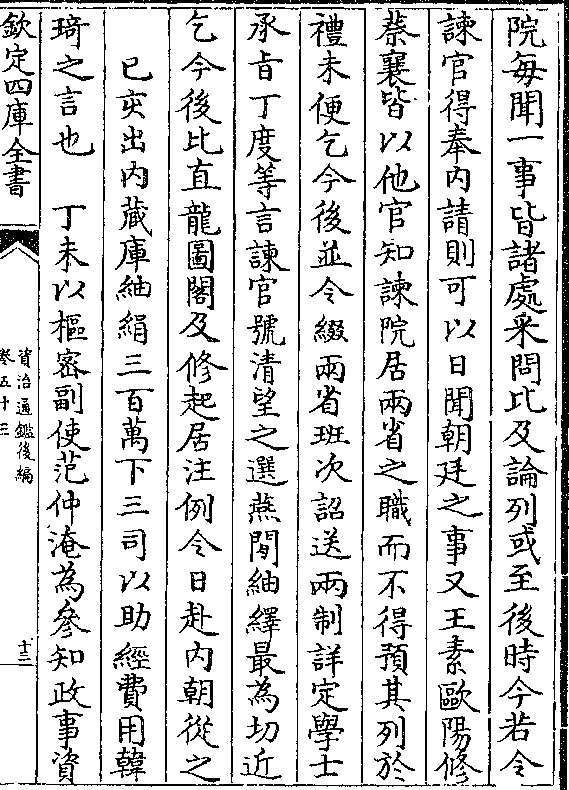 院每聞一事皆諸處采問比及論列或至後時今若令
諫官得奉内請則可以日聞朝廷之事又王素歐陽修
蔡襄皆以他官知諫院居兩省之職而不得預其列於
禮未便乞今後並令綴兩省班次詔送兩制詳定學士
承旨丁度等言諫官號清望之選燕閒紬繹最為切近
乞今後比直龍圖閣及修起居注例令日赴内朝從之
己亥出内藏庫紬絹三百萬下三司以助經費用韓
琦之言也　丁未以樞密副使范仲淹為參知政事資
欽定四庫全書
資治通鑑後編
卷五十三
十二